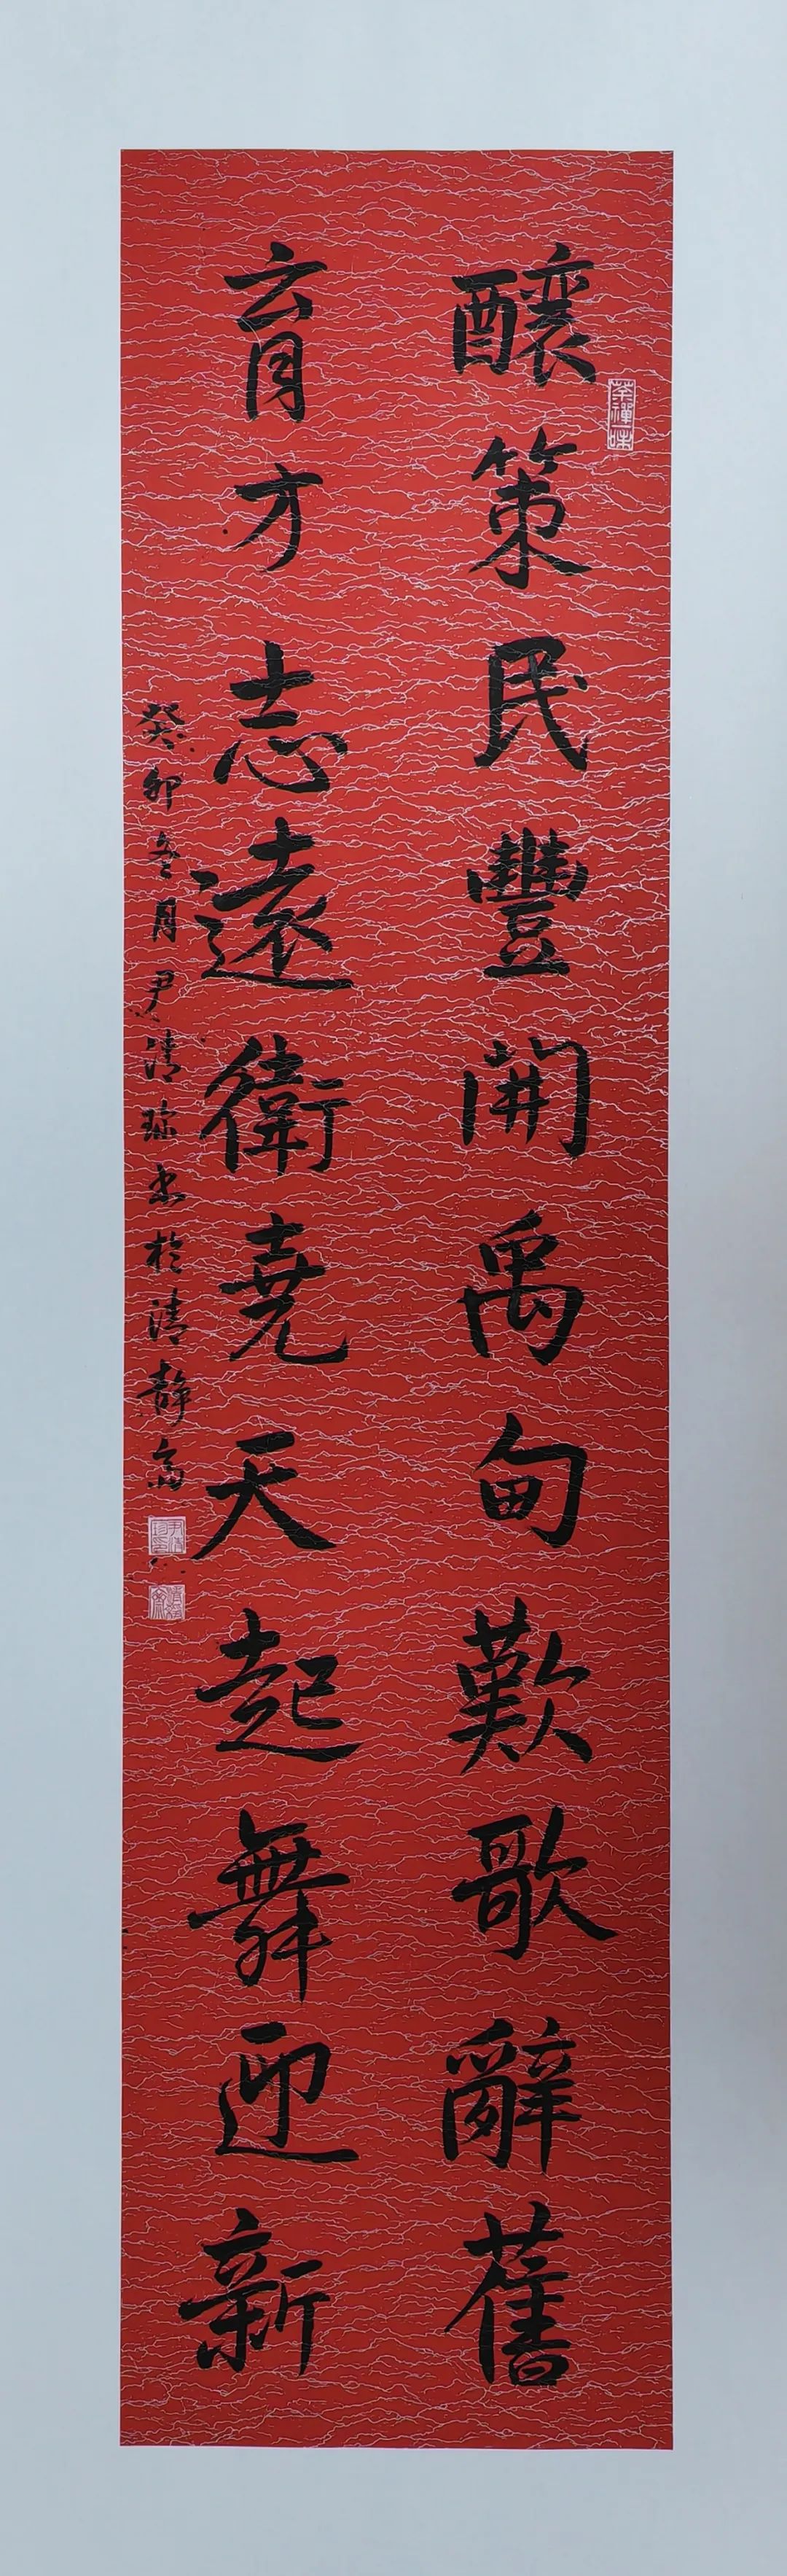 釀策民豐開禹甸歎歌辭舊
茶禪一味
育才志遠衛堯天起舞迎新
癸卯冬月尹清珍書於清靜齋